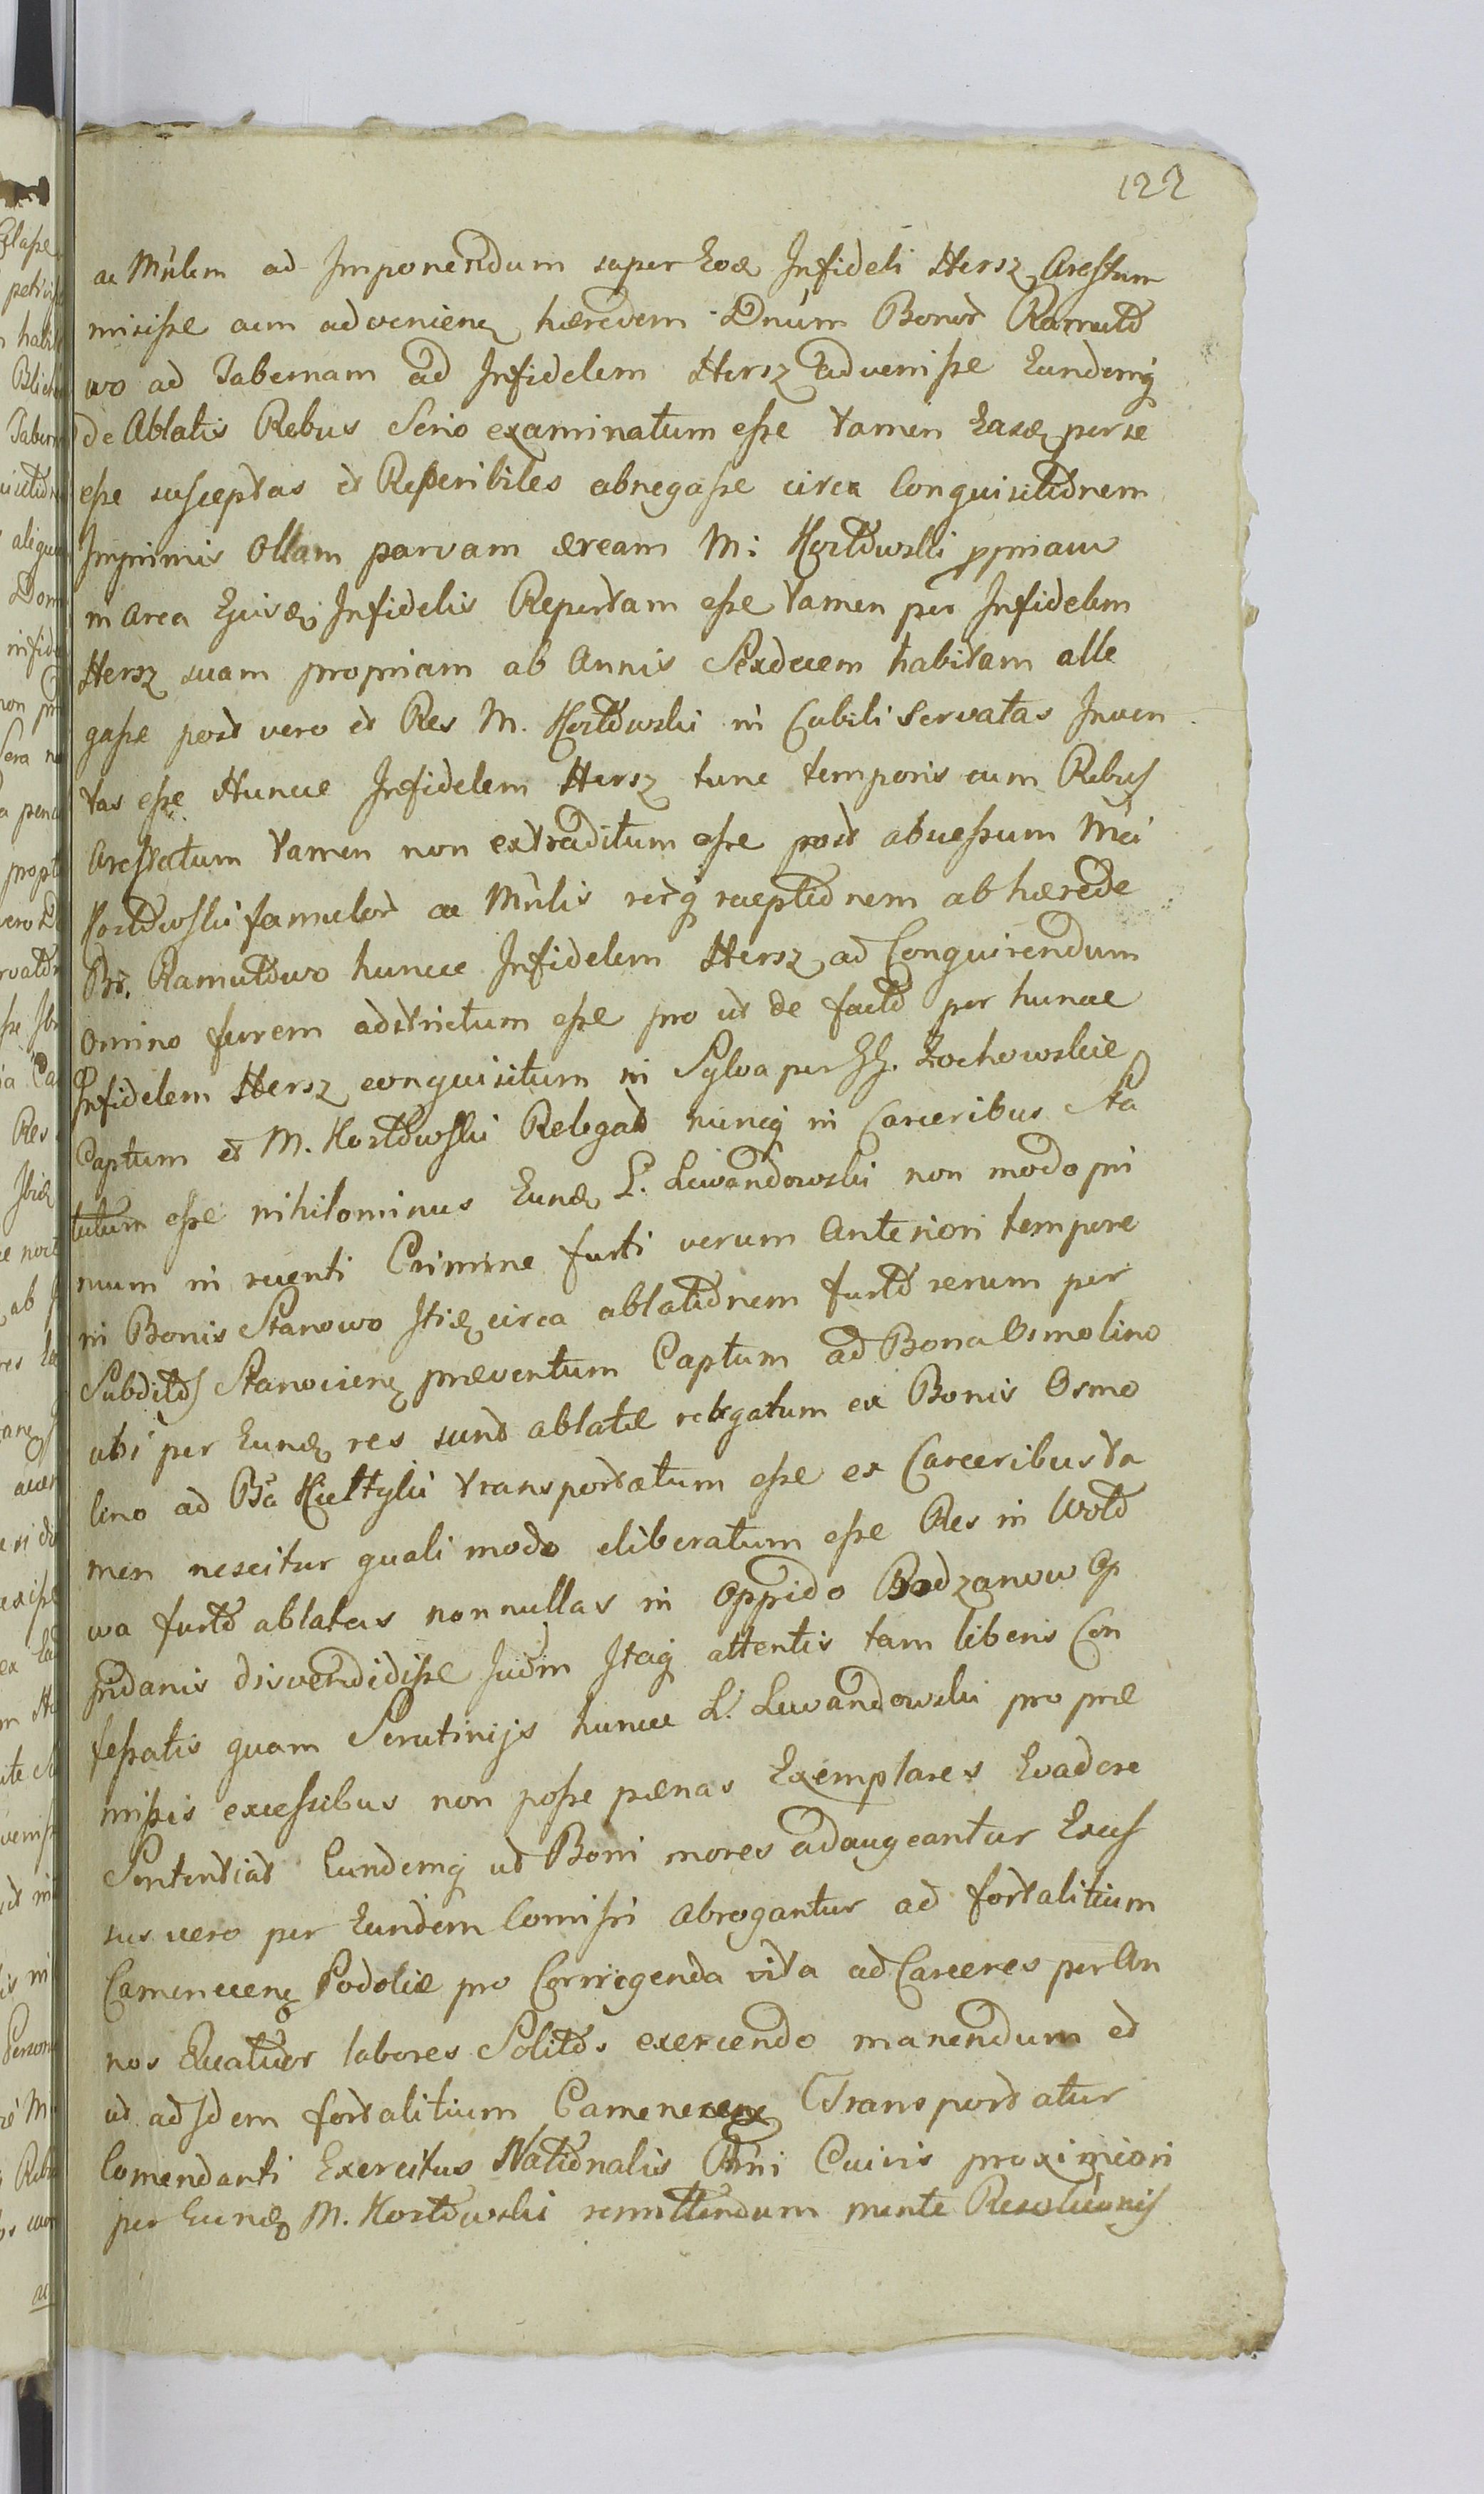 122
ac Mulem ad Imponendum super Eod Infideli Hersz Arestum
misisse cum advenienq hæredem Dnum Bonor Ramuto
wo ad Tabernam ad Infidelem Hersz advenisse Eundemq
de Ablatis Rebus Serio examinatum esse tamen Easd per se
esse susceptas et Reperibiles abnegasse circa Conquisitionem
Imprimis Ollam parvam æream M: Kosztowski ppriam
in Area Ejusd Infidelis Repertam esse tamen per Infidelem
Hersz suam propriam ab Annis Sexdecem habitam alle
gasse post vero et Res M. Kosztowski in Cubili servatas Inven
tas esse Hunce Infidelem Hersz tunc temporis cum Rebus
Arestatum tamen non extraditum esse post abcessum Mci
Kosztowski famulor ac Mulis verq receptionem ab hærede
Br. Ramutowo hunce Infidelem Hersz ad Conquirendum
omino furem adstrictum esse pro ut de facto per hunce
Infidelem Hersz conquisitum in Sylva per GG. Zochowskie
Captum et M. Kosztowski Relegat nuncq in Carceribus Sta
tutum esse nihilominus Eund L. Lewandowski non modo pri
mum in recenti Crimine furti verum Anteriori tempore
in Bonis Stanowo Itid circa ablationem furto rerum per
Subditos Stanovienq præventum Captum ad Bona Osmolino
ubi per Eund res sunt ablatæ relegatum ex Bonis Osmo
lino ad Ba Kieltyki transportatum esse ex Carceribus ta
men nescitur quali modo eliberatum esse Res in Woło
wa furto ablatas nonnullas in Oppido Bodzanow Op
pidanis disvendidisse Judm Itaq attentis tam liberis Con
fessatis quam Scrutinijs hunce L. Lewandowski pro præ
missis excessibus non posse pænas Exemplares Evadere
Sententiat Eundemq ut Boni mores adaugeantur Exces
sus vero per Eundem Comissi abrogantur ad fortalitium
Camenecenq Podoliæ pro Corrigenda vita ad Carceres per An
nos Quatuor labores Solitos exercendo manendum et
ut ad Idem fortalitium Camenecenq Transportatur
Comendanti Exercitus Nationalis Cuivis proximiori
per Eund M. Kosztowski remittendum mente Resolutionis